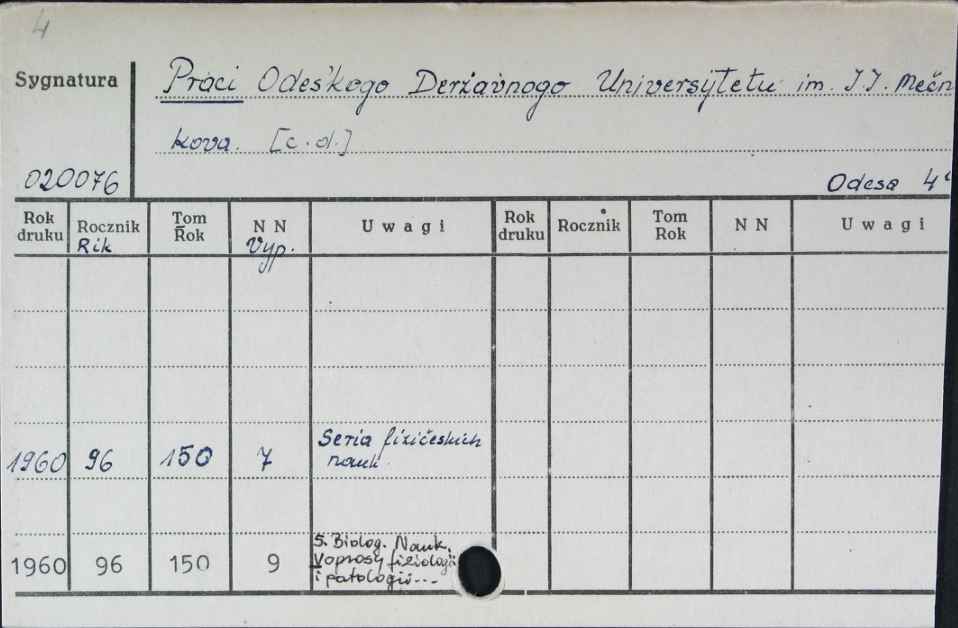 4
Sygnatura Praci Odeśkogo Deržavnogo Universytetu im. I.I. Mečn
kova. [c.d.]
020076 Odesa 4°
Rok druku Rocznik Rik Tom Rok N N Vyp. Uwagi Rok druku Rocznik Tom Rok N N Uwagi
1960 96 150 7 Seria fizičeskich
nauk
1960 96 150 9 S. Biolog. Nauk.
Voprosy fiziologii
i patologii...